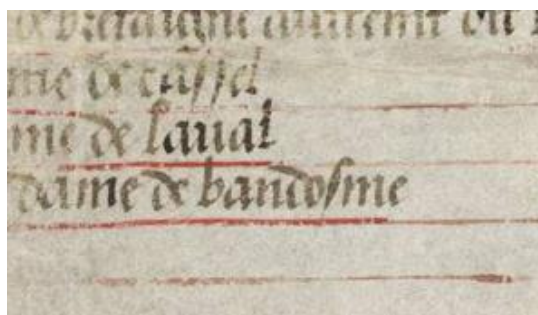 de bretaigne autrement du
me de cassel
me de laual
dame de vandosme